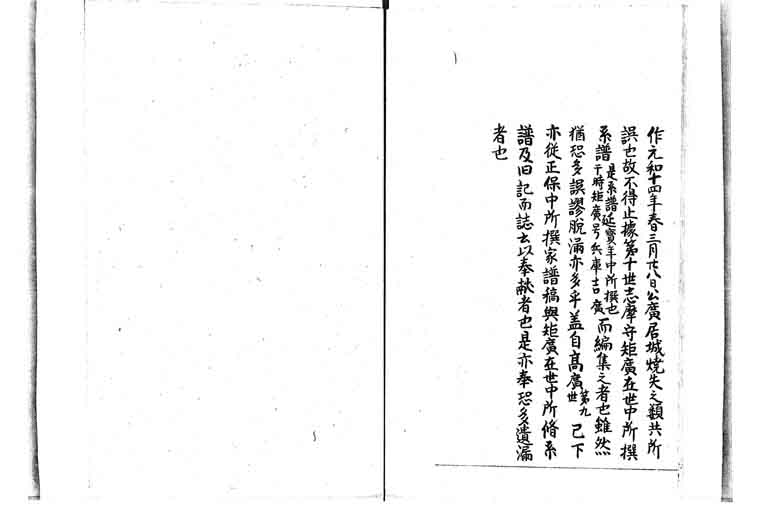 作元和十四年春三月廿八日公廣居城燒失之類共所
誤也故不得止據第十世志摩守矩廣在世中所撰
系譜是系譜延寶年中所撰也于時矩廣号兵庫吉廣而編集之者也雖然
猶恐多誤謬脱漏亦多乎盖自髙廣第九世已下
亦從正保中所撰家譜稿與矩廣在世中所脩系
譜及旧記而誌云以奉献者也是亦奉恐多遺漏
者也